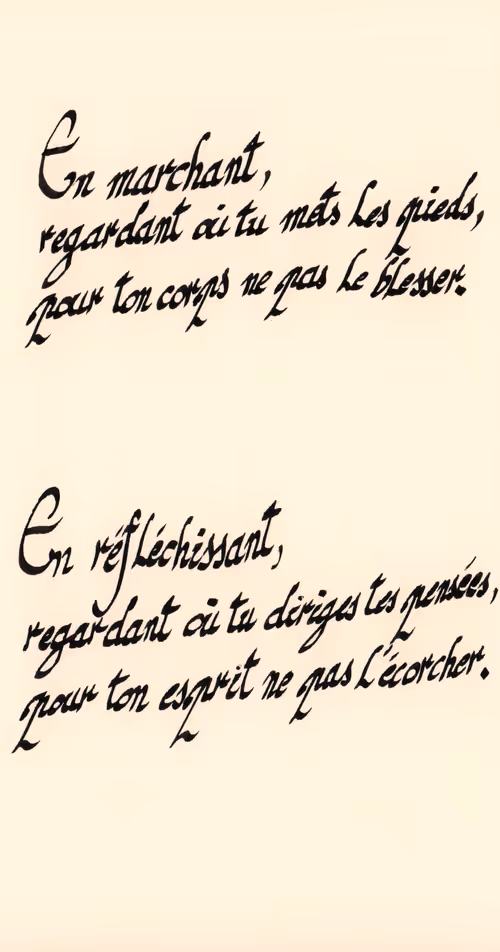 En marchant,
regardant où tu mets les pieds,
pour ton corps ne pas le blesser.
En réfléchissant,
regardant où tu diriges tes pensées,
pour ton esprit ne pas l'écorcher.